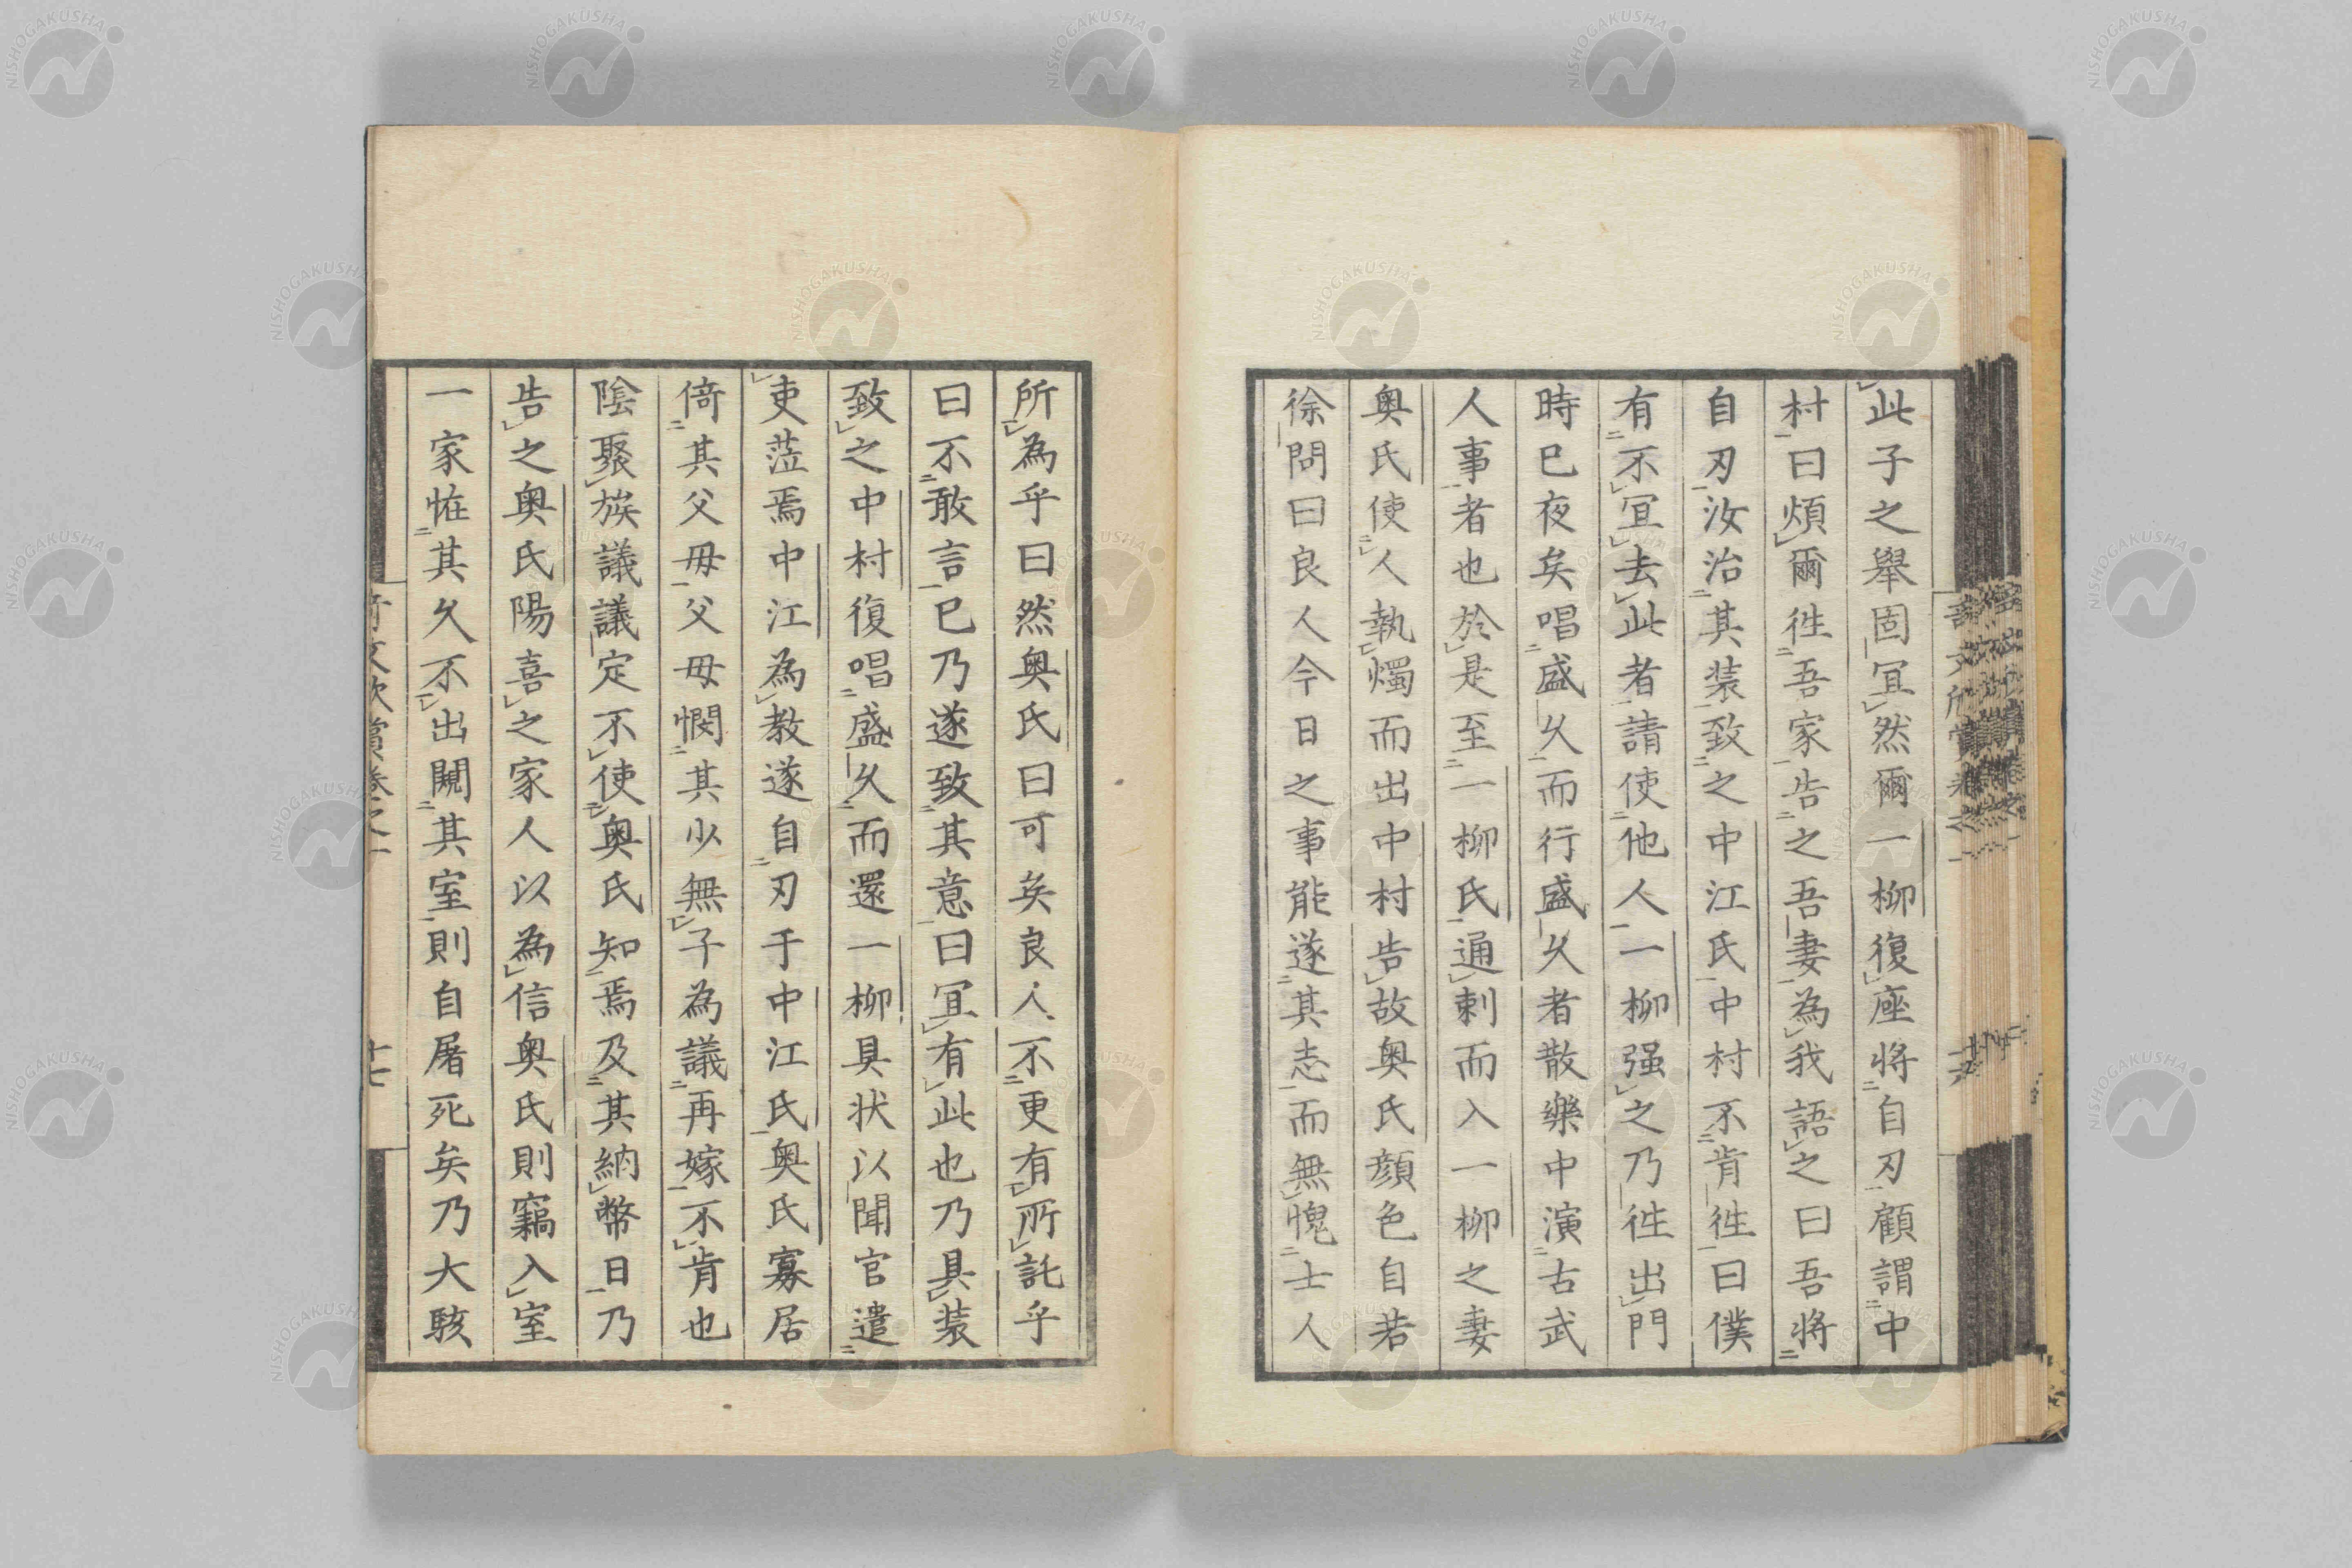 此子之舉固冝然爾一柳復座將自刃顧謂中
村曰煩爾徃吾家告之吾妻為我語之曰吾將
自刃汝治其裝致之中江氏中村不肯徃曰僕
有不冝去此者請使他人一柳强之乃徃出門
時巳夜矣唱盛久而行盛久者散樂中演古武
人事者也於是至一柳氏通刺而入一柳之妻
奥氏使人執燭而出中村告故奥氏顔色自若
徐問曰良人今日之事能遂其志而無愧士人
所為乎曰然奥氏曰可矣良人不更有所託乎
曰不敢言巳乃遂致其意曰冝有此也乃具装
致之中村復唱盛久而還一柳具状以聞官遣
吏蒞焉中江為教遂自刃于中江氏奥氏寡居
倚其父母父母憫其少無子為議再嫁不肯也
陰聚族議議定不使奥氏知焉及其納幣日乃
告之奥氏陽喜之家人以為信奥氏則竊入室
一家恠其久不出闚其室則自屠死矣乃大駭
十七
NISHOGAKUSHA